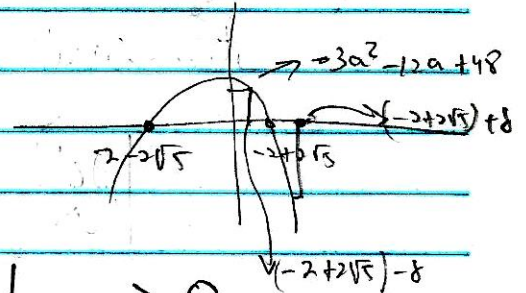 → -3a² -12a +48
(-2+2√5) +8
-2 -2√5
-2+2√5
(-2+2√5) -8
> 0